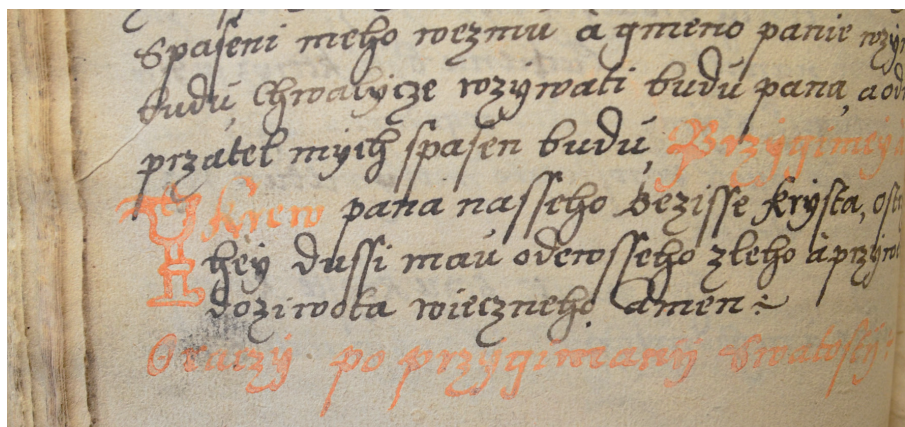 Spaseni meho wezmu a gmeno panie wzy
budu, chwalycze wzywati budu pana, a od
przatel mych spasen budu, Przygimey
Krew pana nasseho Gezisse Krysta, ost
hey dussi mau odewsseho zleho a przyw
doziwota wieczneho. Amen
Oraczy po przygimanij Swatosty